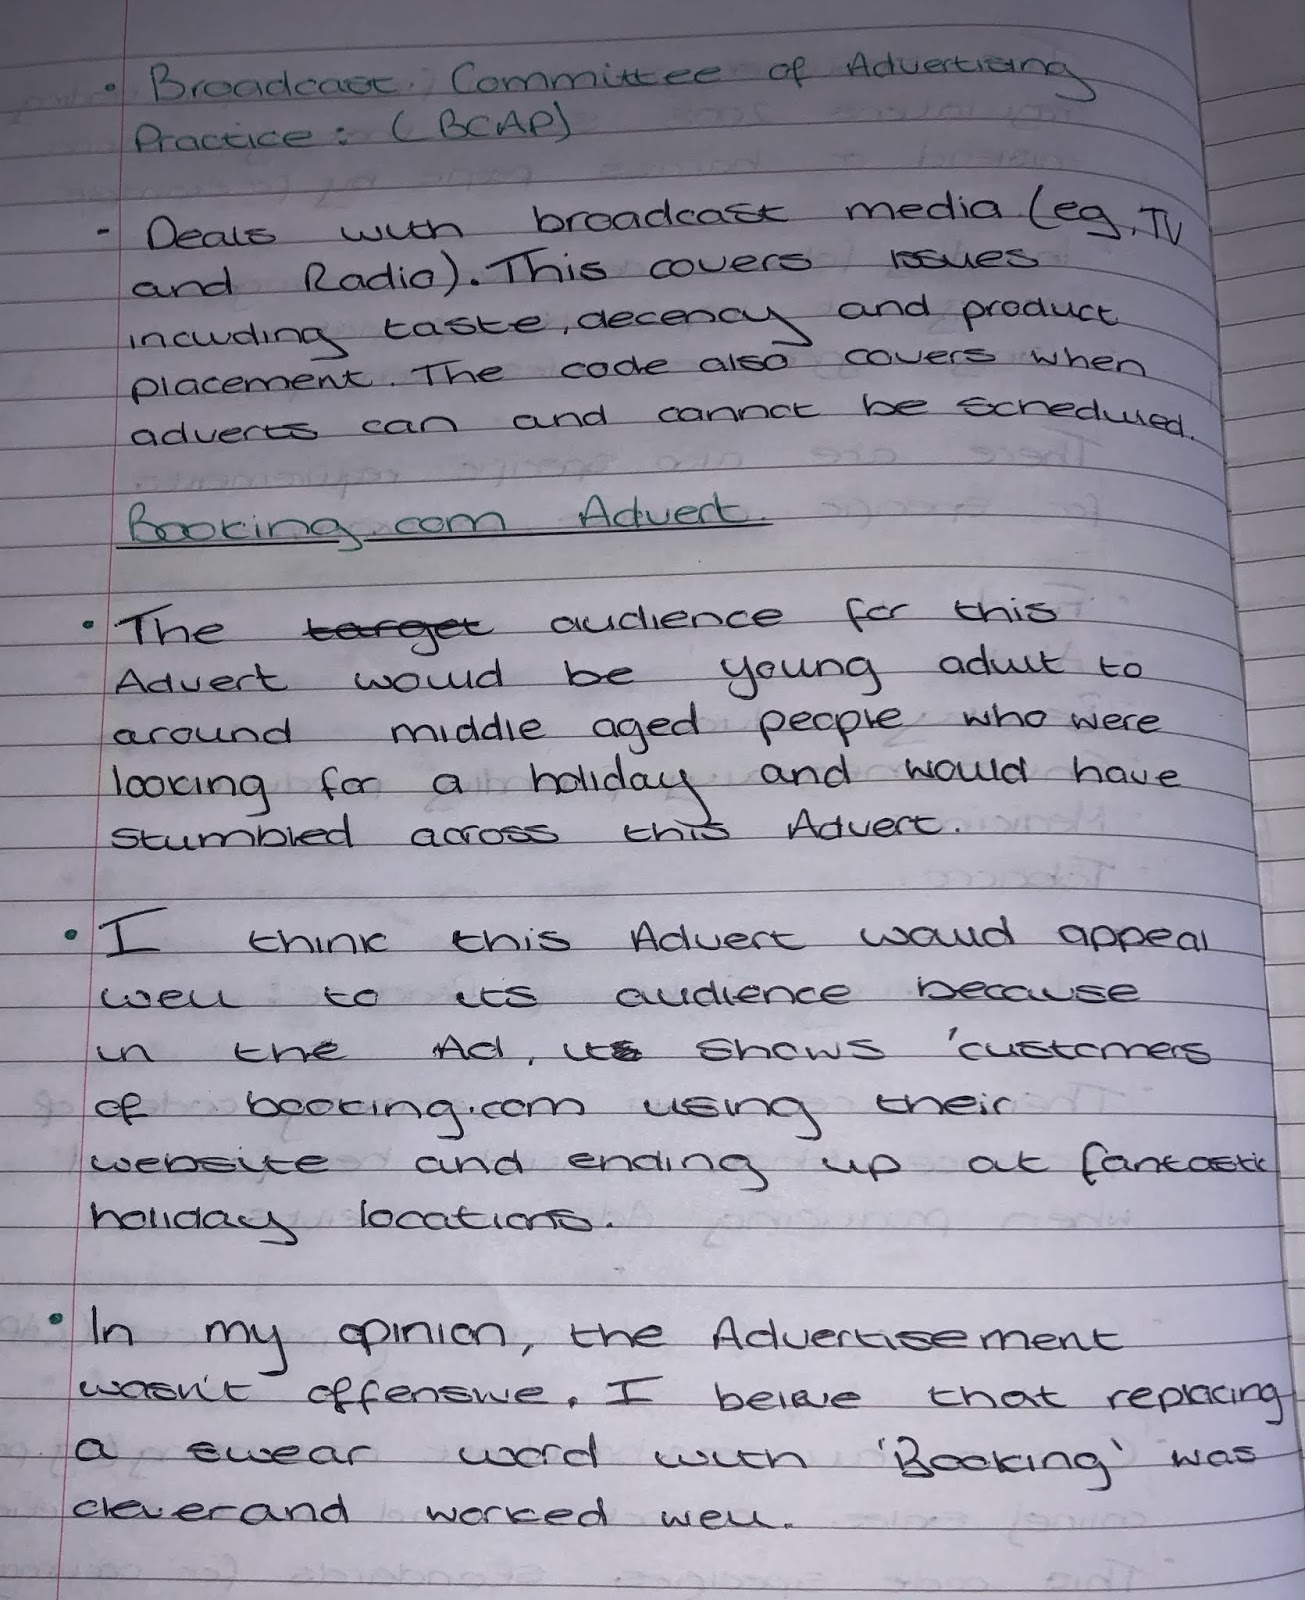 • Broadcast Committee of Advertising
Practice: (BCAP)
- Deals with broadcast media (eg, TV
and Radio). This covers issues
including taste, decency and product
placement. The code also covers when
adverts can and cannot be scheduled.
Booking.com Advert.
• The target audience for this
Advert would be young adult to
around middle aged people who were
looking for a holiday and would have
stumbled across this Advert.
• I think this Advert would appeal
well to its audience because
in the Ad, its shows 'customers
of booking.com using their
website and ending up at fantastic
holiday locations.
• In my opinion, the Advertisement
wasn't offensive. I belive that replacing
a swear word with 'Booking' was
clever and worked well.